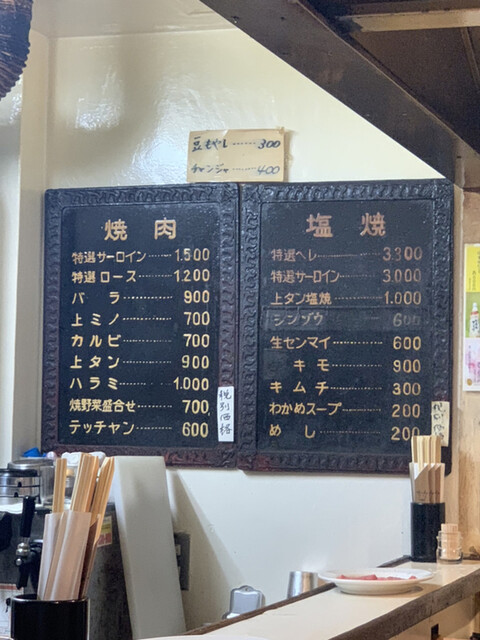 豆もやし……300
チャンジャ……400
焼肉
特選サーロイン……1.500
特選ロース……1.200
バラ……900
上ミノ……700
カルビ……700
上タン……900
ハラミ……1.000
焼野菜盛合せ……700
テッチャン……600
税別価格
塩焼
特選ヘレ……3.300
特選サーロイン……3.000
上タン塩焼……1.000
シンゾウ……600
生センマイ……600
キモ……900
キムチ……300
わかめスープ……200
めし……200